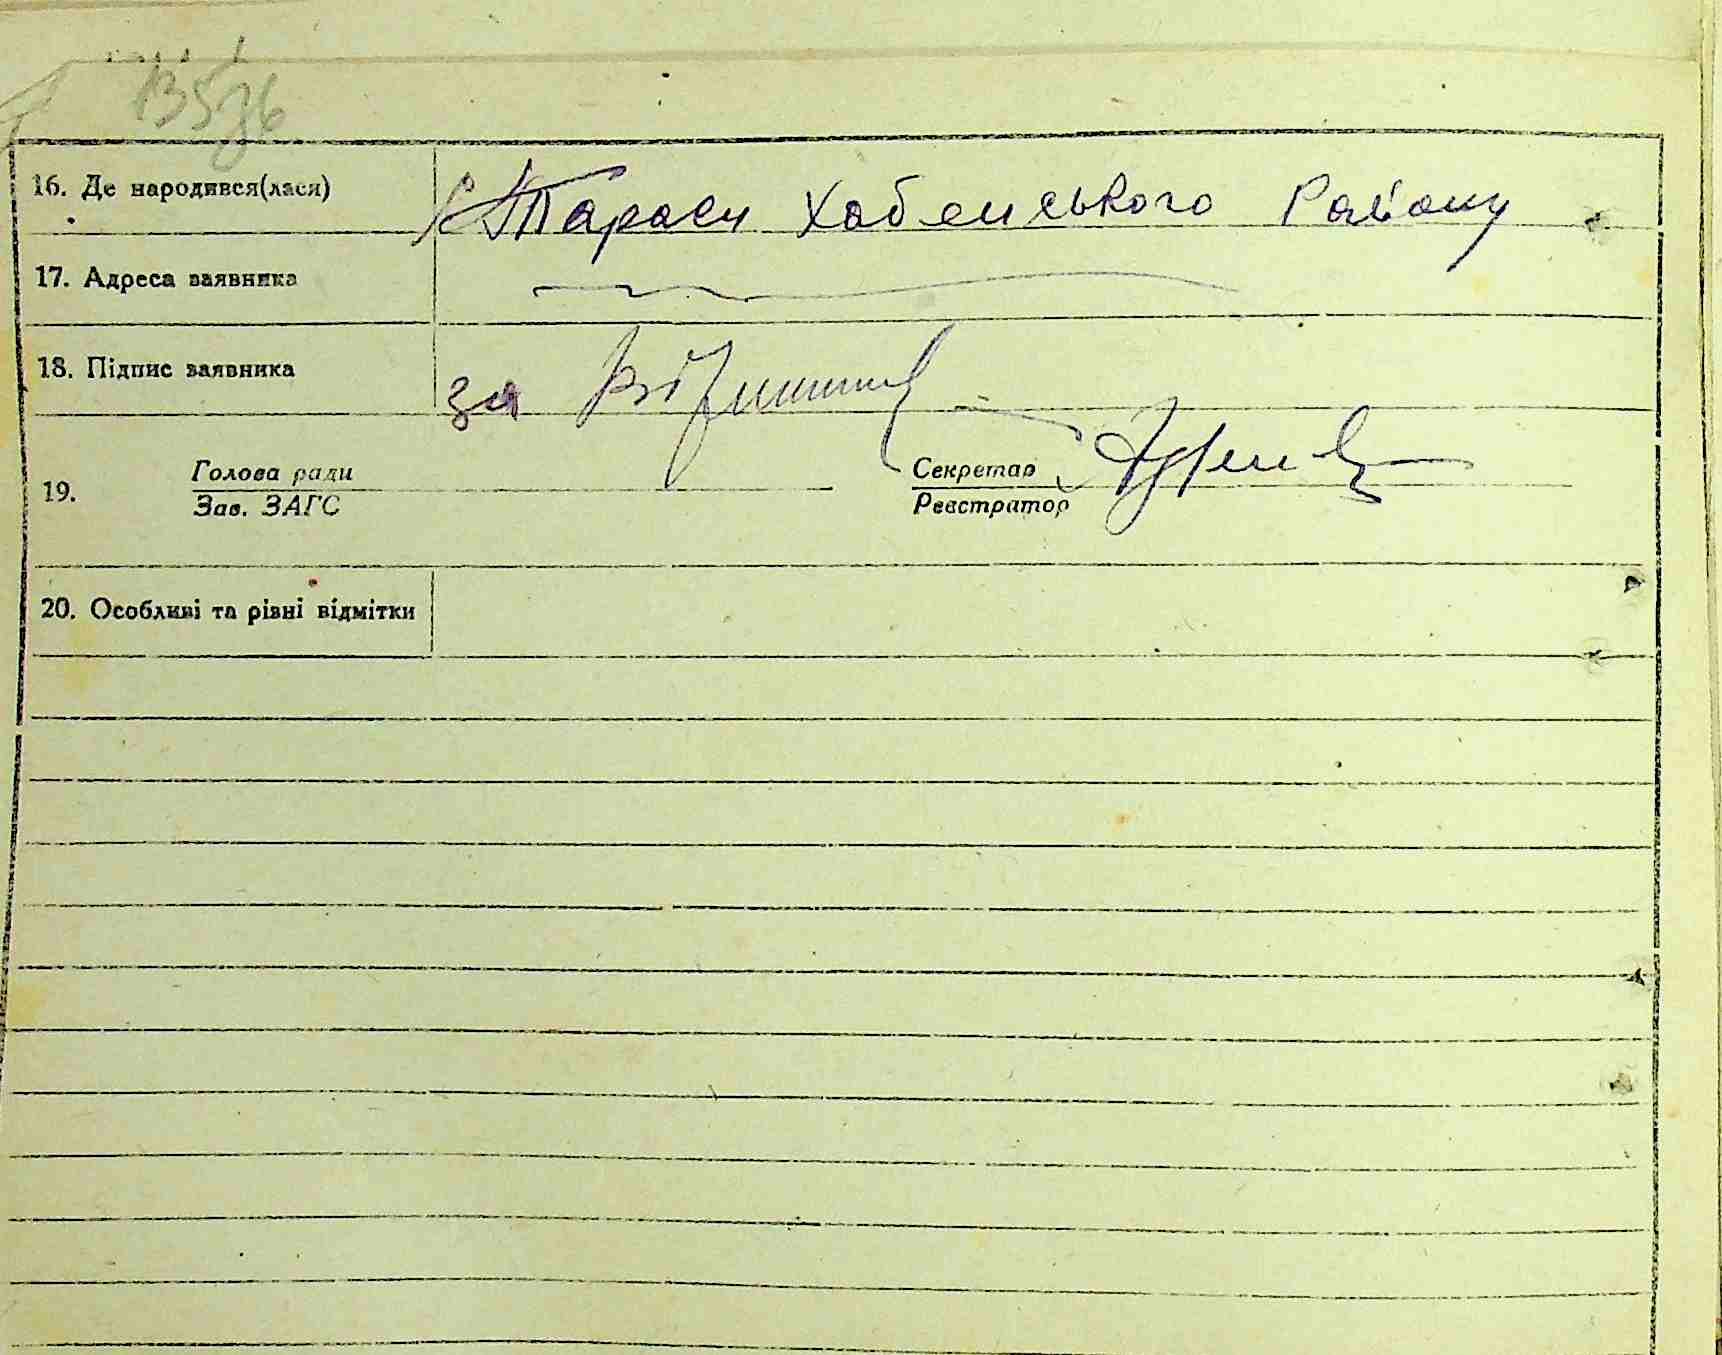 16. Де народився(лася) с. Тараси Хабенського Району
17. Адреса заявника
18. Підпис заявника за
19. Голова ради Секретар
Зав. ЗАГС Реєстратор
20. Особливі та різні відмітки